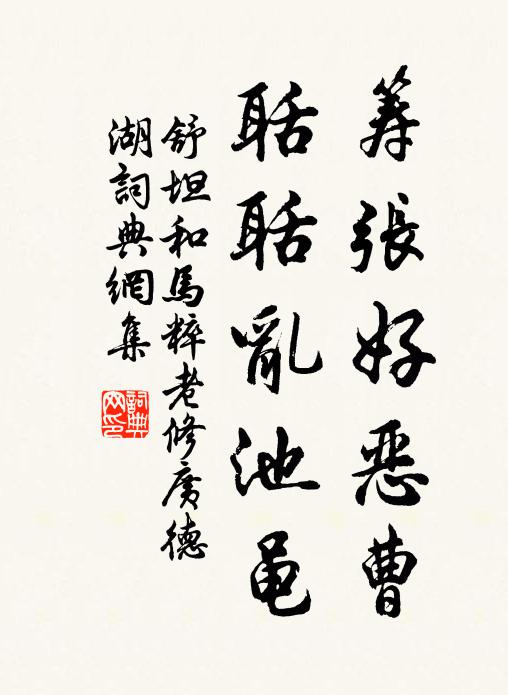 筹張好惡曹
聒聒亂池黾
舒坦和馬粹老修廣德
湖詞典網集
詞典
网印